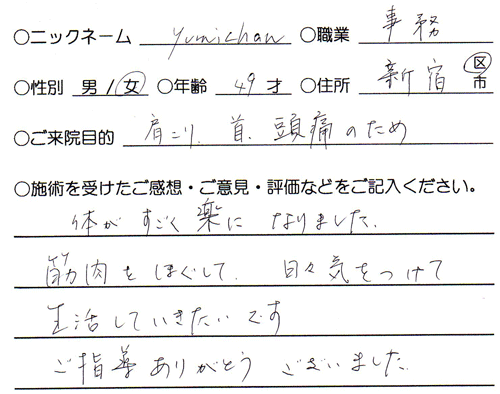 ○ニックネーム yumichan ○職業 事務
○性別 男/女 ○年齢 49才 ○住所 新宿 区市
○ご来院目的 肩こり、首、頭痛のため
○施術を受けたご感想・ご意見・評価などをご記入ください。
体がすごく楽になりました。
筋肉をほぐして、日々気をつけて
生活していきたいです
ご指導ありがとうございました。